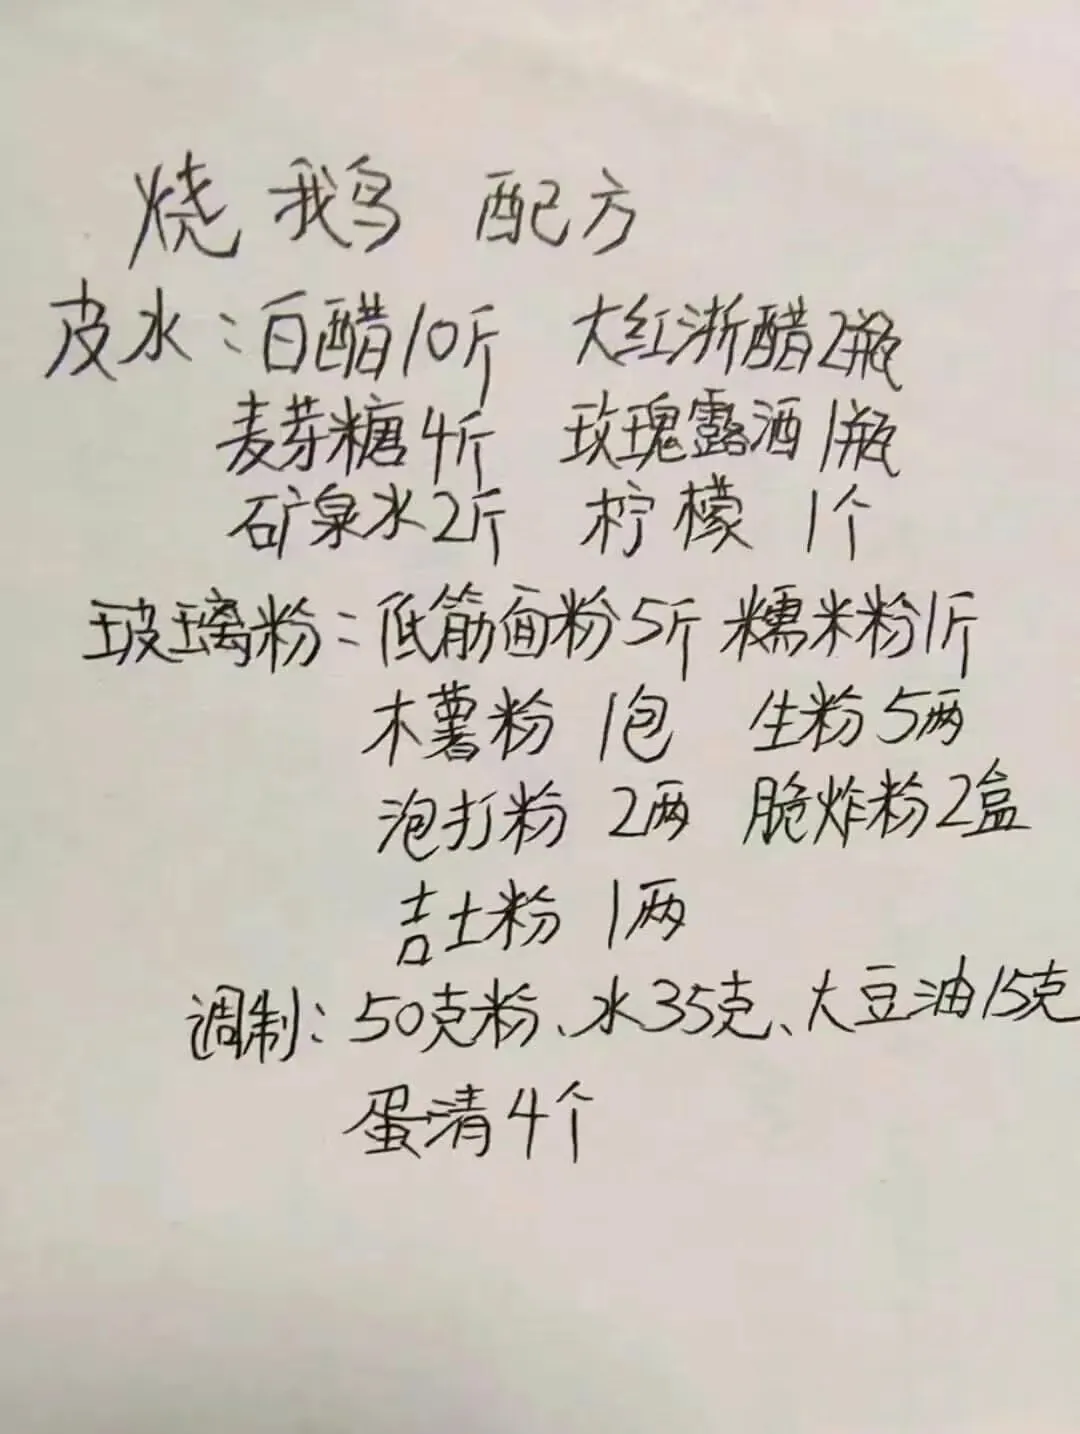 烧鹅 配方
皮水：白醋10斤 大红浙醋2瓶
麦芽糖4斤 玫瑰露酒1瓶
矿泉水2斤 柠檬 1个
玻璃粉：低筋面粉5斤 糯米粉1斤
木薯粉 1包 生粉5两
泡打粉 2两 脆炸粉2盒
吉士粉 1两
调制：50克粉、水35克、大豆油15克
蛋清4个